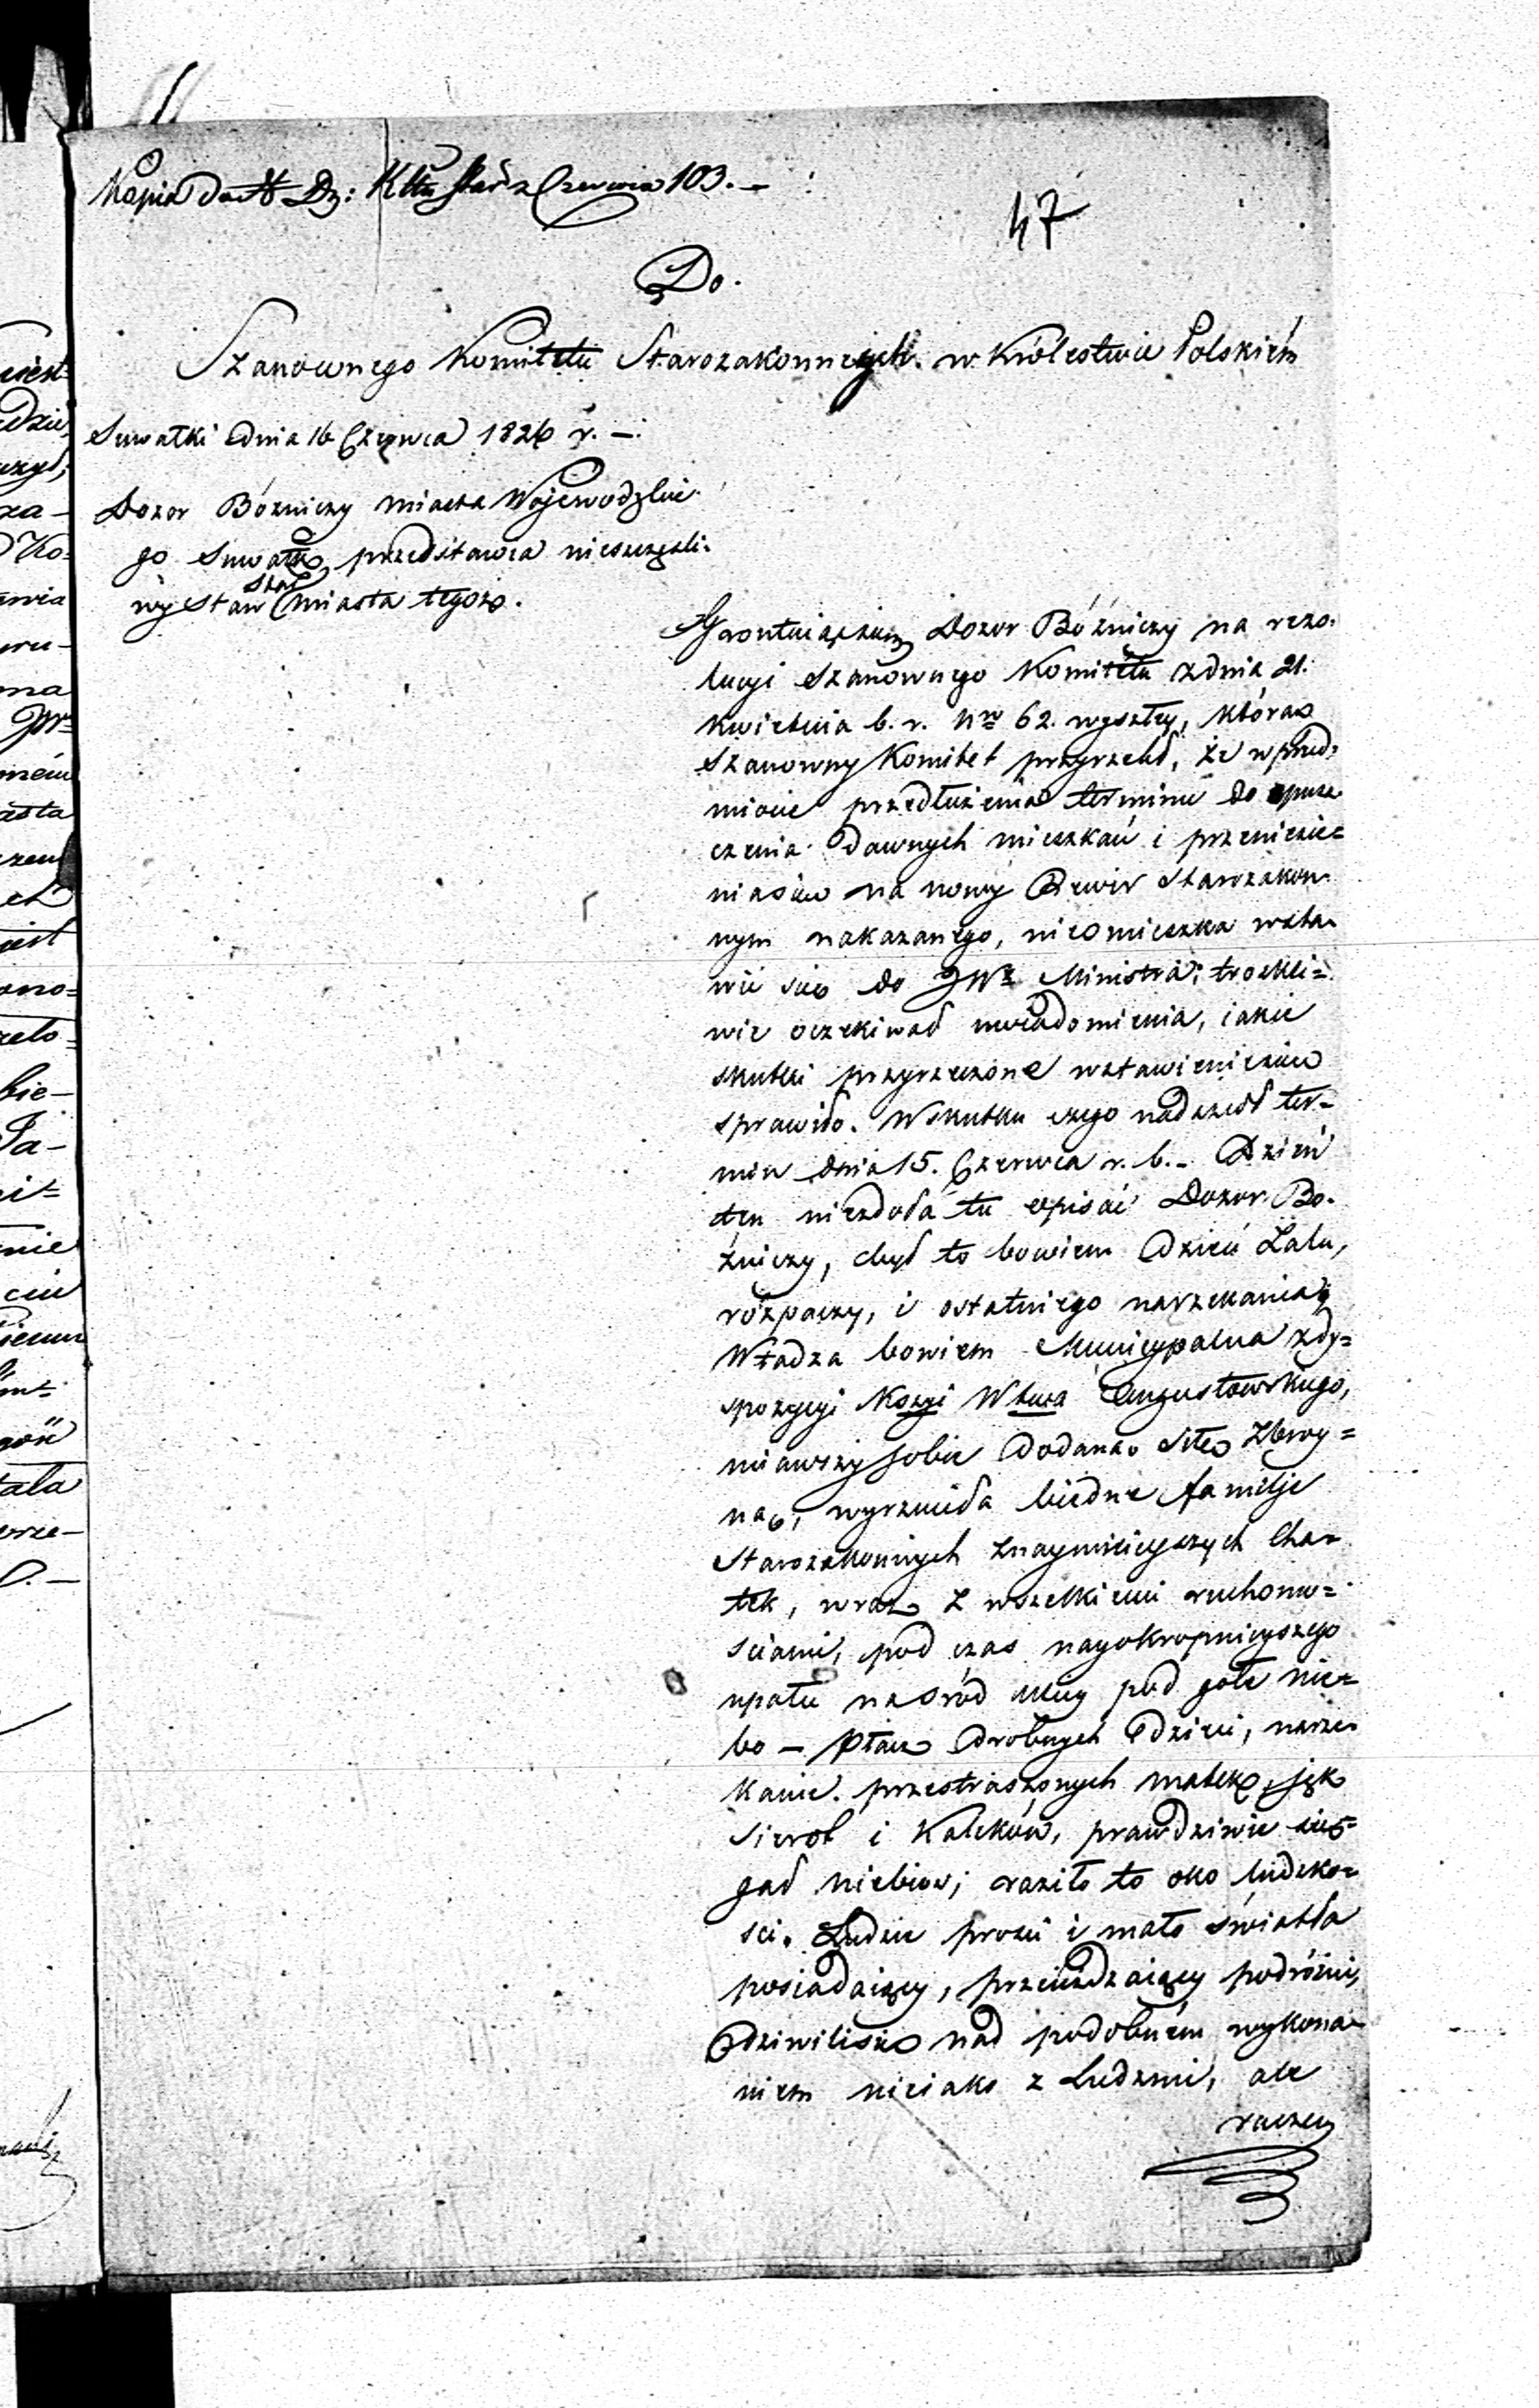 Kopia do Nr Dz: Kttu Star z Czerwca 103. –
47
Do.
Szanownego Komitetu Starozakonnych w Królestwie Polskiém
Suwałki dnia 16 Czerwca 1826 r. –.
Dozor Bóżniczy miasta Wojewodzkie-
go Suwałk, przedstawia nieszczęśli-
wy Stan Star miasta tegoż.
Dozor Bóżniczy na rezo-
lucyi Szanownego Komitetu z dnia 21.
Kwietnia b. r. Nro 62. wyszłey, którą
Szanowny Komitet przyrzekł, że w przed-
miocie przedłużenia terminu do opusz-
czenia dawnych mieszkań i przeniesie-
nia się na nowy Rewir Starozakon-
nym nakazanego, nieomieszka wsta-
wić się do JWo Ministra; troskli-
wie oczekiwał uwiadomienia, iakie
skutki przyrzeczone wstawienie się
sprawiło. W skutku czego nadszedł ter-
min dnia 15. Czerwca r. b. – Dzień
ten niezdoła tu opisać Dozor Bo-
żniczy, był to bowiem dzień żalu,
rozpaczy, i ostatniego narzekania;
Władza bowiem Municypalna z dy-
spozycyi Kossyi Wtwa Augustowskiego,
miawszy sobie dodaną siłę zbroy-
ną, wyrzuciła biedne familje
Starozakonnych z naymnieyszych cha-
tek, wraz z wszelkiemi ruchomo-
sciami, pod czas nayokropnieyszego
upału na śród ulicy pod gołe nie-
bo – płacz drobnych dzieci, narze-
kanie przestraszonych matek, jęk
sierot i kaleków, prawdziwie się-
gał niebios; raziło to oko ludzko-
sci. Ludzie prości i mało światła
posiadaiący, przeieżdzaiący podróżni,
dziwili się nad podobném wykona-
niem nieiako z Ludzmi, ale
raczey